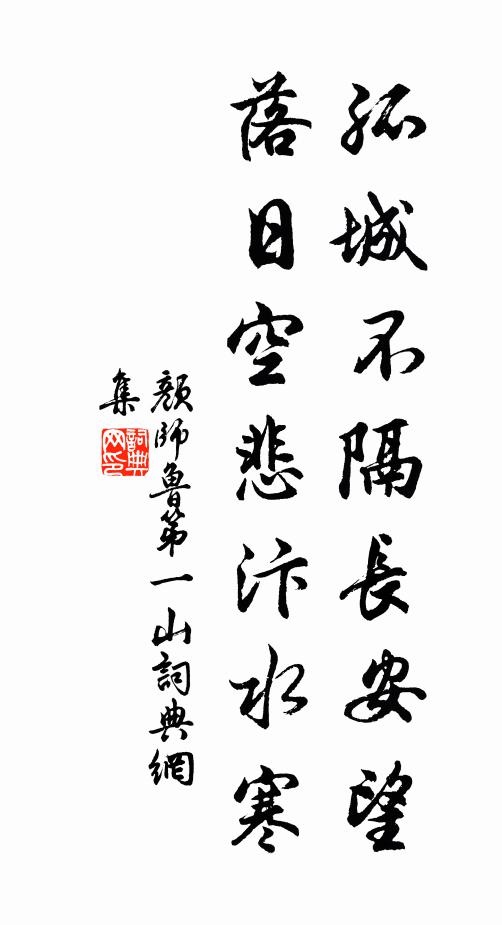 孤城不隔長安望
落日空悲汴水寒
顏師魯第一山詞典網
集
詞典
网印